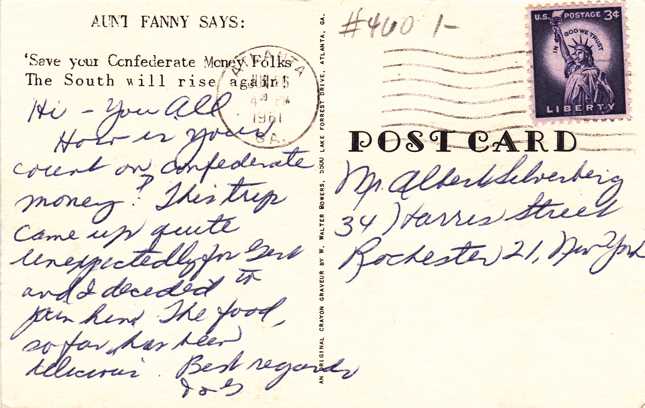 AUNT FANNY SAYS:
'Save your Confederate Money Folks
The South will rise again!'
Hi - You All
How is your
count on Confederate
money? This trip
came up quite
unexpectedly for Gert
and I decided to
join her. The food,
so far, has been
delicious. Best regards
I & G
AN ORIGINAL CRAYON GRAVEUR BY W. WALTER BOWERS, LAKE FORREST DRIVE, ATLANTA, GA.
#460 1-
ATLANTA
1961
GA.
U.S. POSTAGE 3¢
IN GOD WE TRUST
LIBERTY
POST CARD
Mr. Albert Silverberg
34 Harris Street
Rochester 21, New York